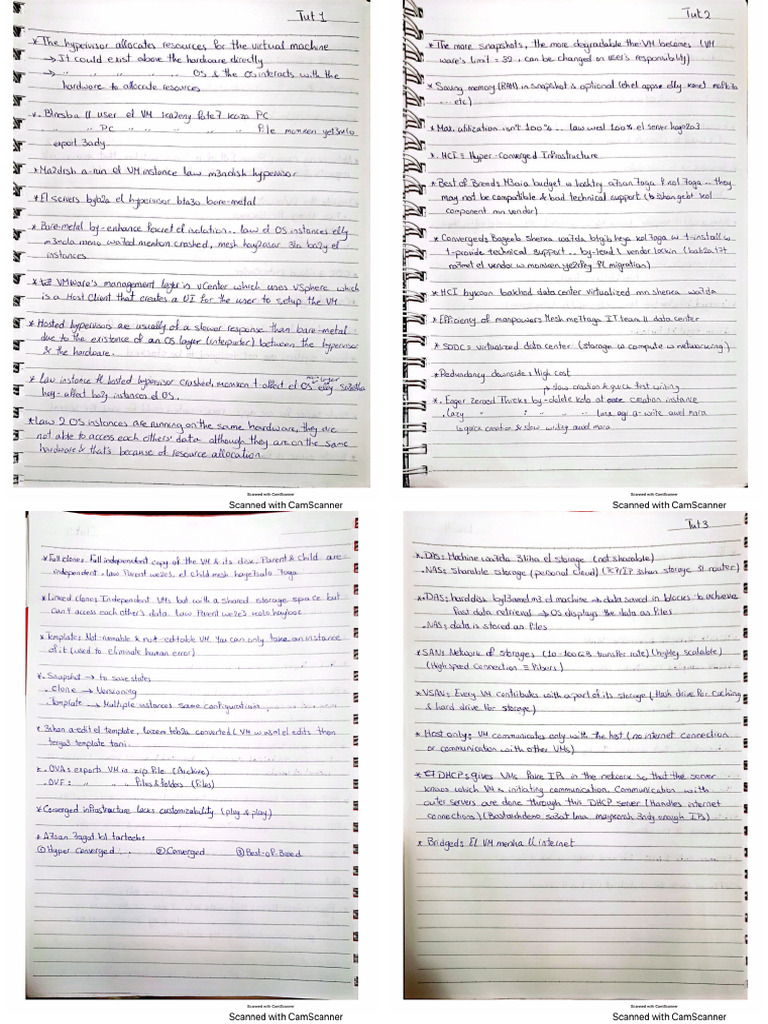 Tut 1
* The hypervisor allocates resources for the virtual machine
→ It could exist above the hardware directly
→ " " " " OS & the OS interacts with the
hardware to allocate resources
*. Blnesba ll user el VM ka2eny file f ka2a PC
" " PC " " " " " file momken
export 3ady.
* Ma2dish a-run el VM instance law m3ndish hypervisor
* El servers byb2a el hypervisor bta3o bare-metal
* Bare-metal by-enhance factor el isolation.. law el OS instances elly
m3ndo mena wa7ed menhon crashed, mesh hay2asar 3la ba2y el
instances.
* VMware's management layer is vCenter which uses VSphere which
is a Host Client that creates a UI for the user to setup the VM
* Hosted hypervisors are usually of a slower response than bare-metal
due to the existence of an OS layer (interpreter) between the hypervisor
& the hardware.
* Law instance fl hosted hypervisor crashed, momken t-affect el OS elly
hay-affect ba2y instances el OS.
* Law 2 OS instances are running on the same hardware, they are
not able to access each others' data although they are on the same
hardware & that's because of resource allocation.
Scanned with CamScanner
Scanned with CamScanner
Tut 2
* The more snapshots, the more degradable the VM becomes (VM
ware's limit = 32, can be changed on user's responsibility)
* Saving memory (RAM) in snapshot is optional (el apps elly kanet
... etc)
* Max. utilization isn't 100%... law wesl 100% el server
*. HCI = Hyper-Converged Infrastructure
* Best of Breed: M3aia budget w a7san 7aga f kol 7aga.. they
may not be compatible & bad technical support (b kol
component mn vendor)
* Converged: Bageeb sherka wa7da btgib heya kol 7aga w t-install w
t-provide technical support.. by-lead l vendor lockin (
el vendor w momken fl migration)
* HCI bykoon bakhod data center virtualized mn sherka wa7da
* Efficiency of manpower: Mesh me7taga IT team ll data center
* SDDC = virtualized data center (storage w compute w networking)
* Redundancy downside: High cost
↳ slow creation & quick first writing
*. Eager Zeroed Thick: by-delete kolo at creation instance
. Lazy " : " " " lma agi a-write awel mara
↳ quick creation & slow writing awel mara
Scanned with CamScanner
Scanned with CamScanner
* Full clone: Full independent copy of the VM & its disk. Parent & child are
independent. law Parent we2e3, el child mesh 7aga
* Linked clone: Independent VMs but with a shared storage space but
can't access each other's data. Law Parent we2e3 kolo
* Template: Not-runnable & not-editable VM. You can only take an instance
of it (used to eliminate human error)
*. Snapshot → to save states
. Clone → Versioning
. Template → Multiple instances same configuration.
* 3shan a-edit el template, lazem teb2a converted l VM w a3ml el edits then
terga3 template tani.
*. OVA: exports VM in zip file (Archive)
. OVF: " " " files & folders (Files)
* Converged infrastructure lacks customizability (plug & play)
* A7san 7aga bl tarteeb:
① Hyper Converged ② Converged ③ Best-of-Breed
Scanned with CamScanner
Scanned with CamScanner
Tut 3
*. DAS: Machine wa7da 3liha el storage (not sharable)
. NAS: Sharable storage (personal cloud) (TCP/IP 3shan storage fl router)
*. DAS: harddisk m3 el machine → data saved in blocks to achieve
fast data retrieval → OS displays the data as files
. NAS: data is stored as files
* SAN: Network of storages (10-100GB transfer rate) (highly scalable)
(High speed connection = Fibers)
* VSAN: Every VM contributes with a part of its storage (Flash drive for caching
& hard drive for storage)
* Host only: VM communicates only with the host (no internet connection
or communication with other VMs)
* DHCP: gives VMs fake IPs in the network so that the server
knows which VM is initiating communication. Communication with
outer servers are done through this DHCP server (Handles internet
connections) (Bastakhdemo sa3at lma maykonsh 3ndy enough IPs)
* Bridged: El VM menha ll internet
Scanned with CamScanner
Scanned with CamScanner